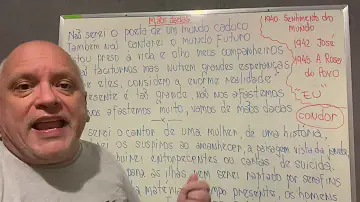 Mãos dadas
Não serei o poeta de um mundo caduco
Também não cantarei o mundo futuro
Estou preso à vida e olho meus companheiros
taciturnos mas nutrem grandes esperanças
eles, considero a enorme realidade
presente é tão grande, não nos afastemos
nos afastemos muito, vamos de mãos dadas
x
serei o cantor de uma mulher, de uma história
os suspiros ao amanhecer, a paisagem vista da janela
entorpecentes ou cartas de suicida
para as ilhas nem serei raptado por serafins
matéria, tempo presente, os homens
1940. Sentimento do
mundo
1942 José
1945 A Rosa
do Povo
"EU"
condor